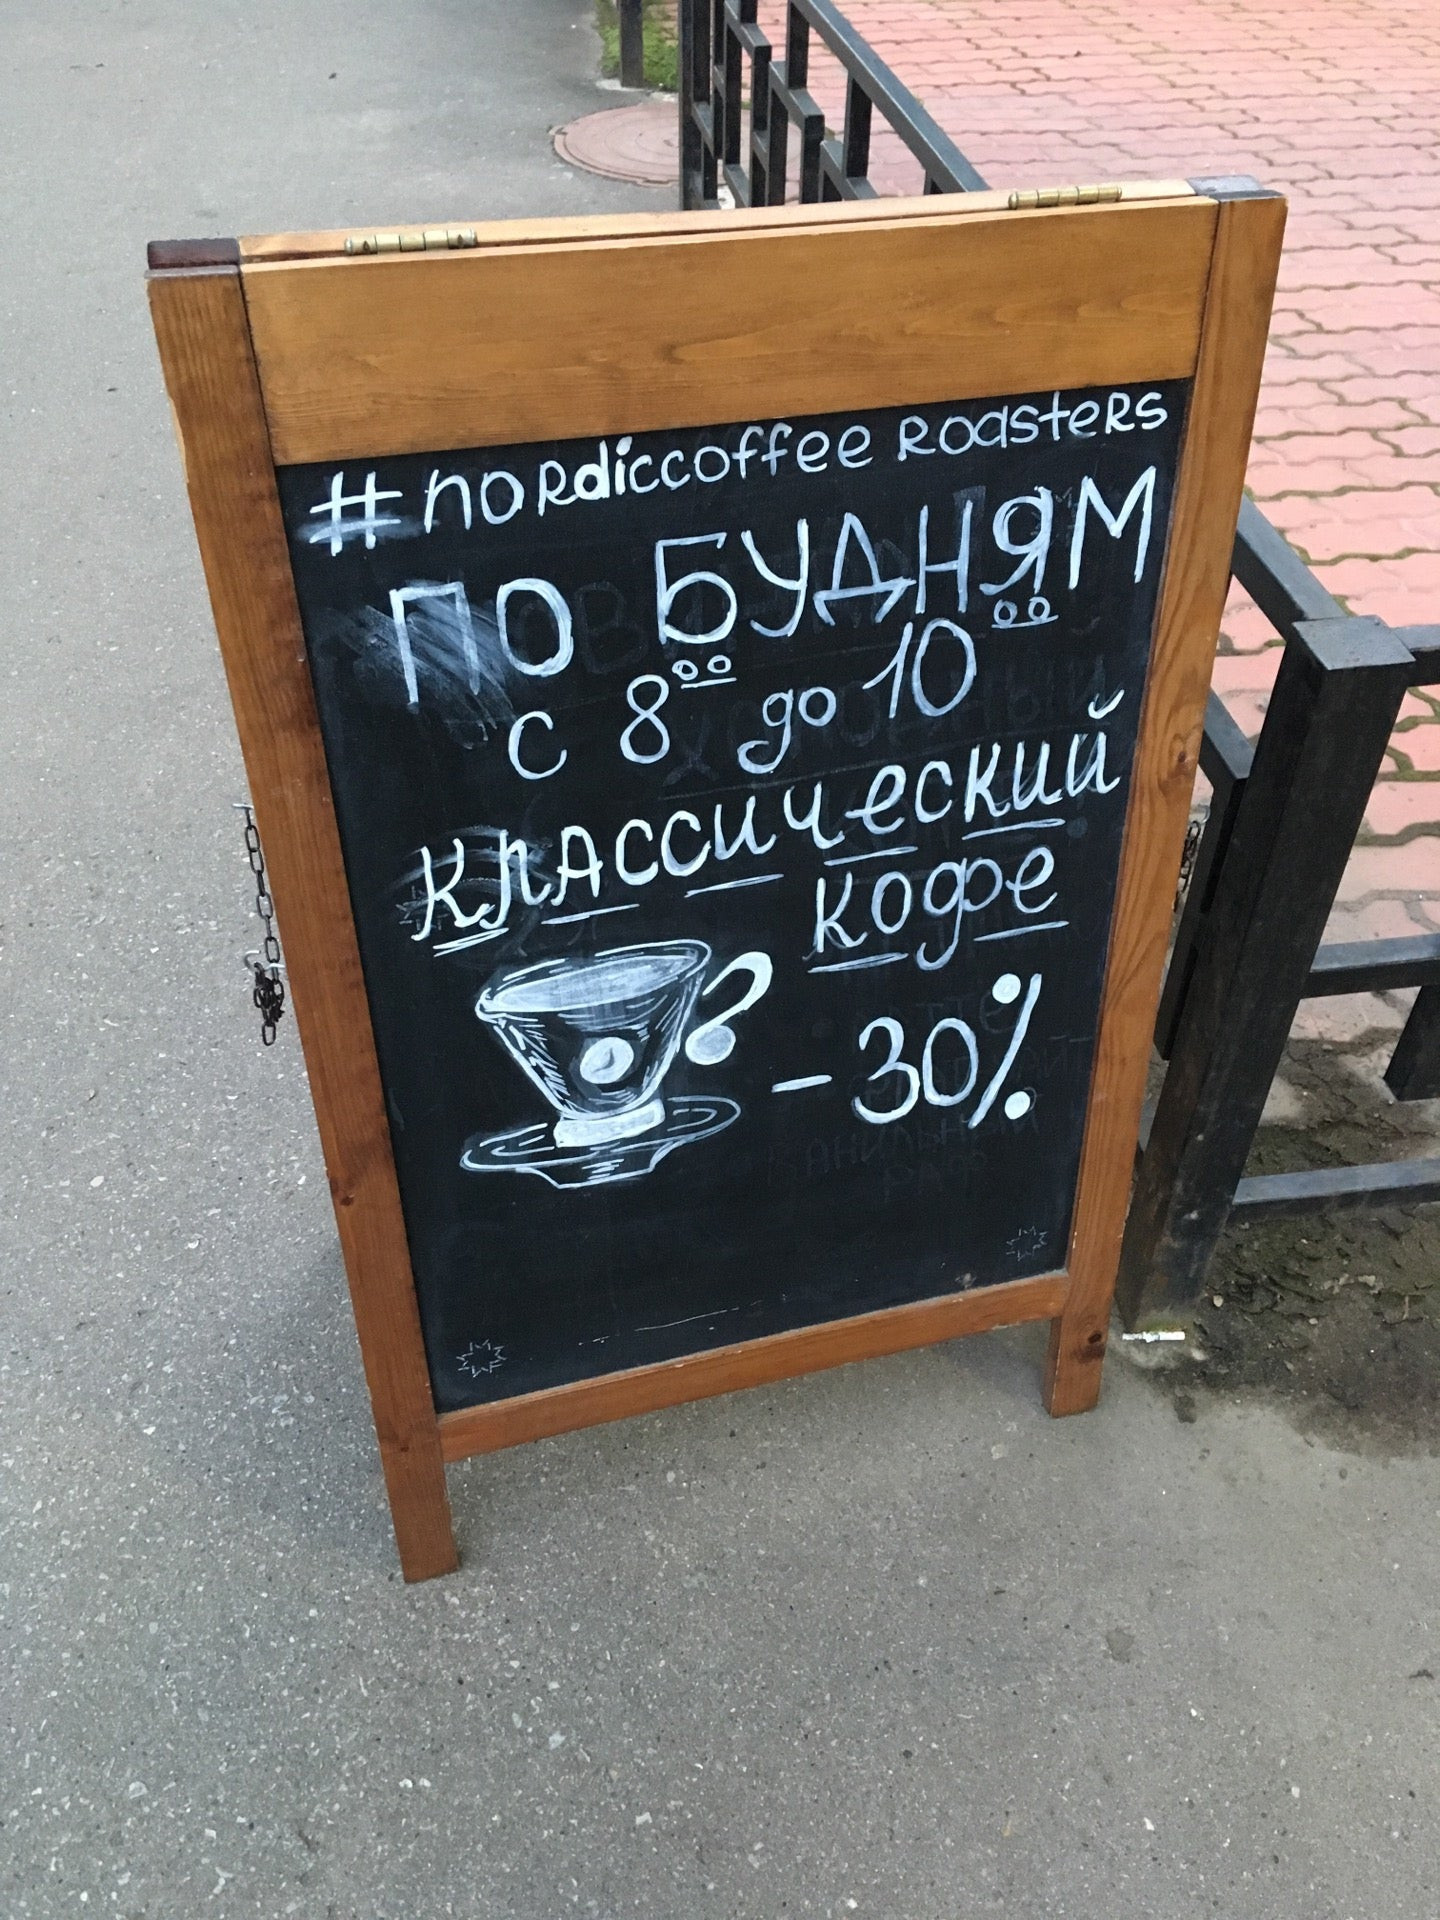 #nordiccoffee roasters
ПО БУДНЯМ
с 8⁰⁰ до 10⁰⁰
КЛАССИЧЕСКИЙ
кофе
-30%
ВАНИЛЬНЫЙ
РАФ